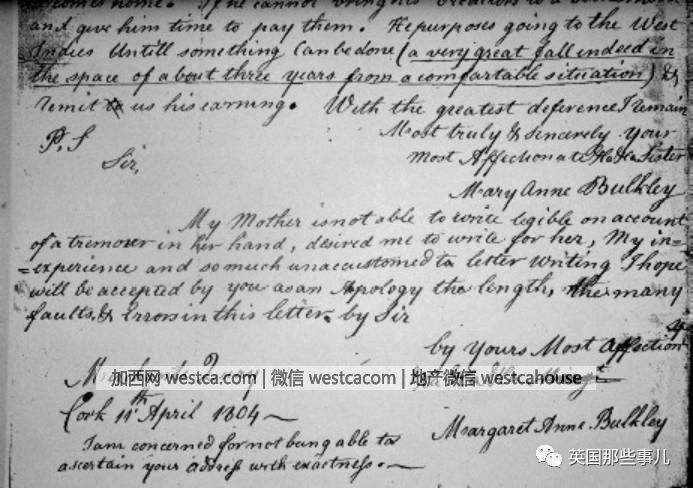 and give him time to pay them. He purposes going to the West
Indies Untill something Can be done (a very great fall indeed in
the space of about three years from a comfortable situation) &
remit to us his earning. With the greatest deference I remain
Most truly & Sincerely your
P.S
Sir,
most Affectionate Sister
Mary Anne Bulkley
My Mother is not able to write legible on account
of a tremour in her hand, desired me to write for her, My in=
=experience and so much unaccustomed to letter writing I hope
will be accepted by you as an Apology the length, the many
faults, & Errors in this letter. by Sir
by Yours Most Affection
加西网 westca.com | 微信 westcacom | 地产微信 westcahouse
Cork 11th April 1804
Margaret Anne Bulkley
I am concerned for not being able to
ascertain your address with exactness.
英国那些事儿